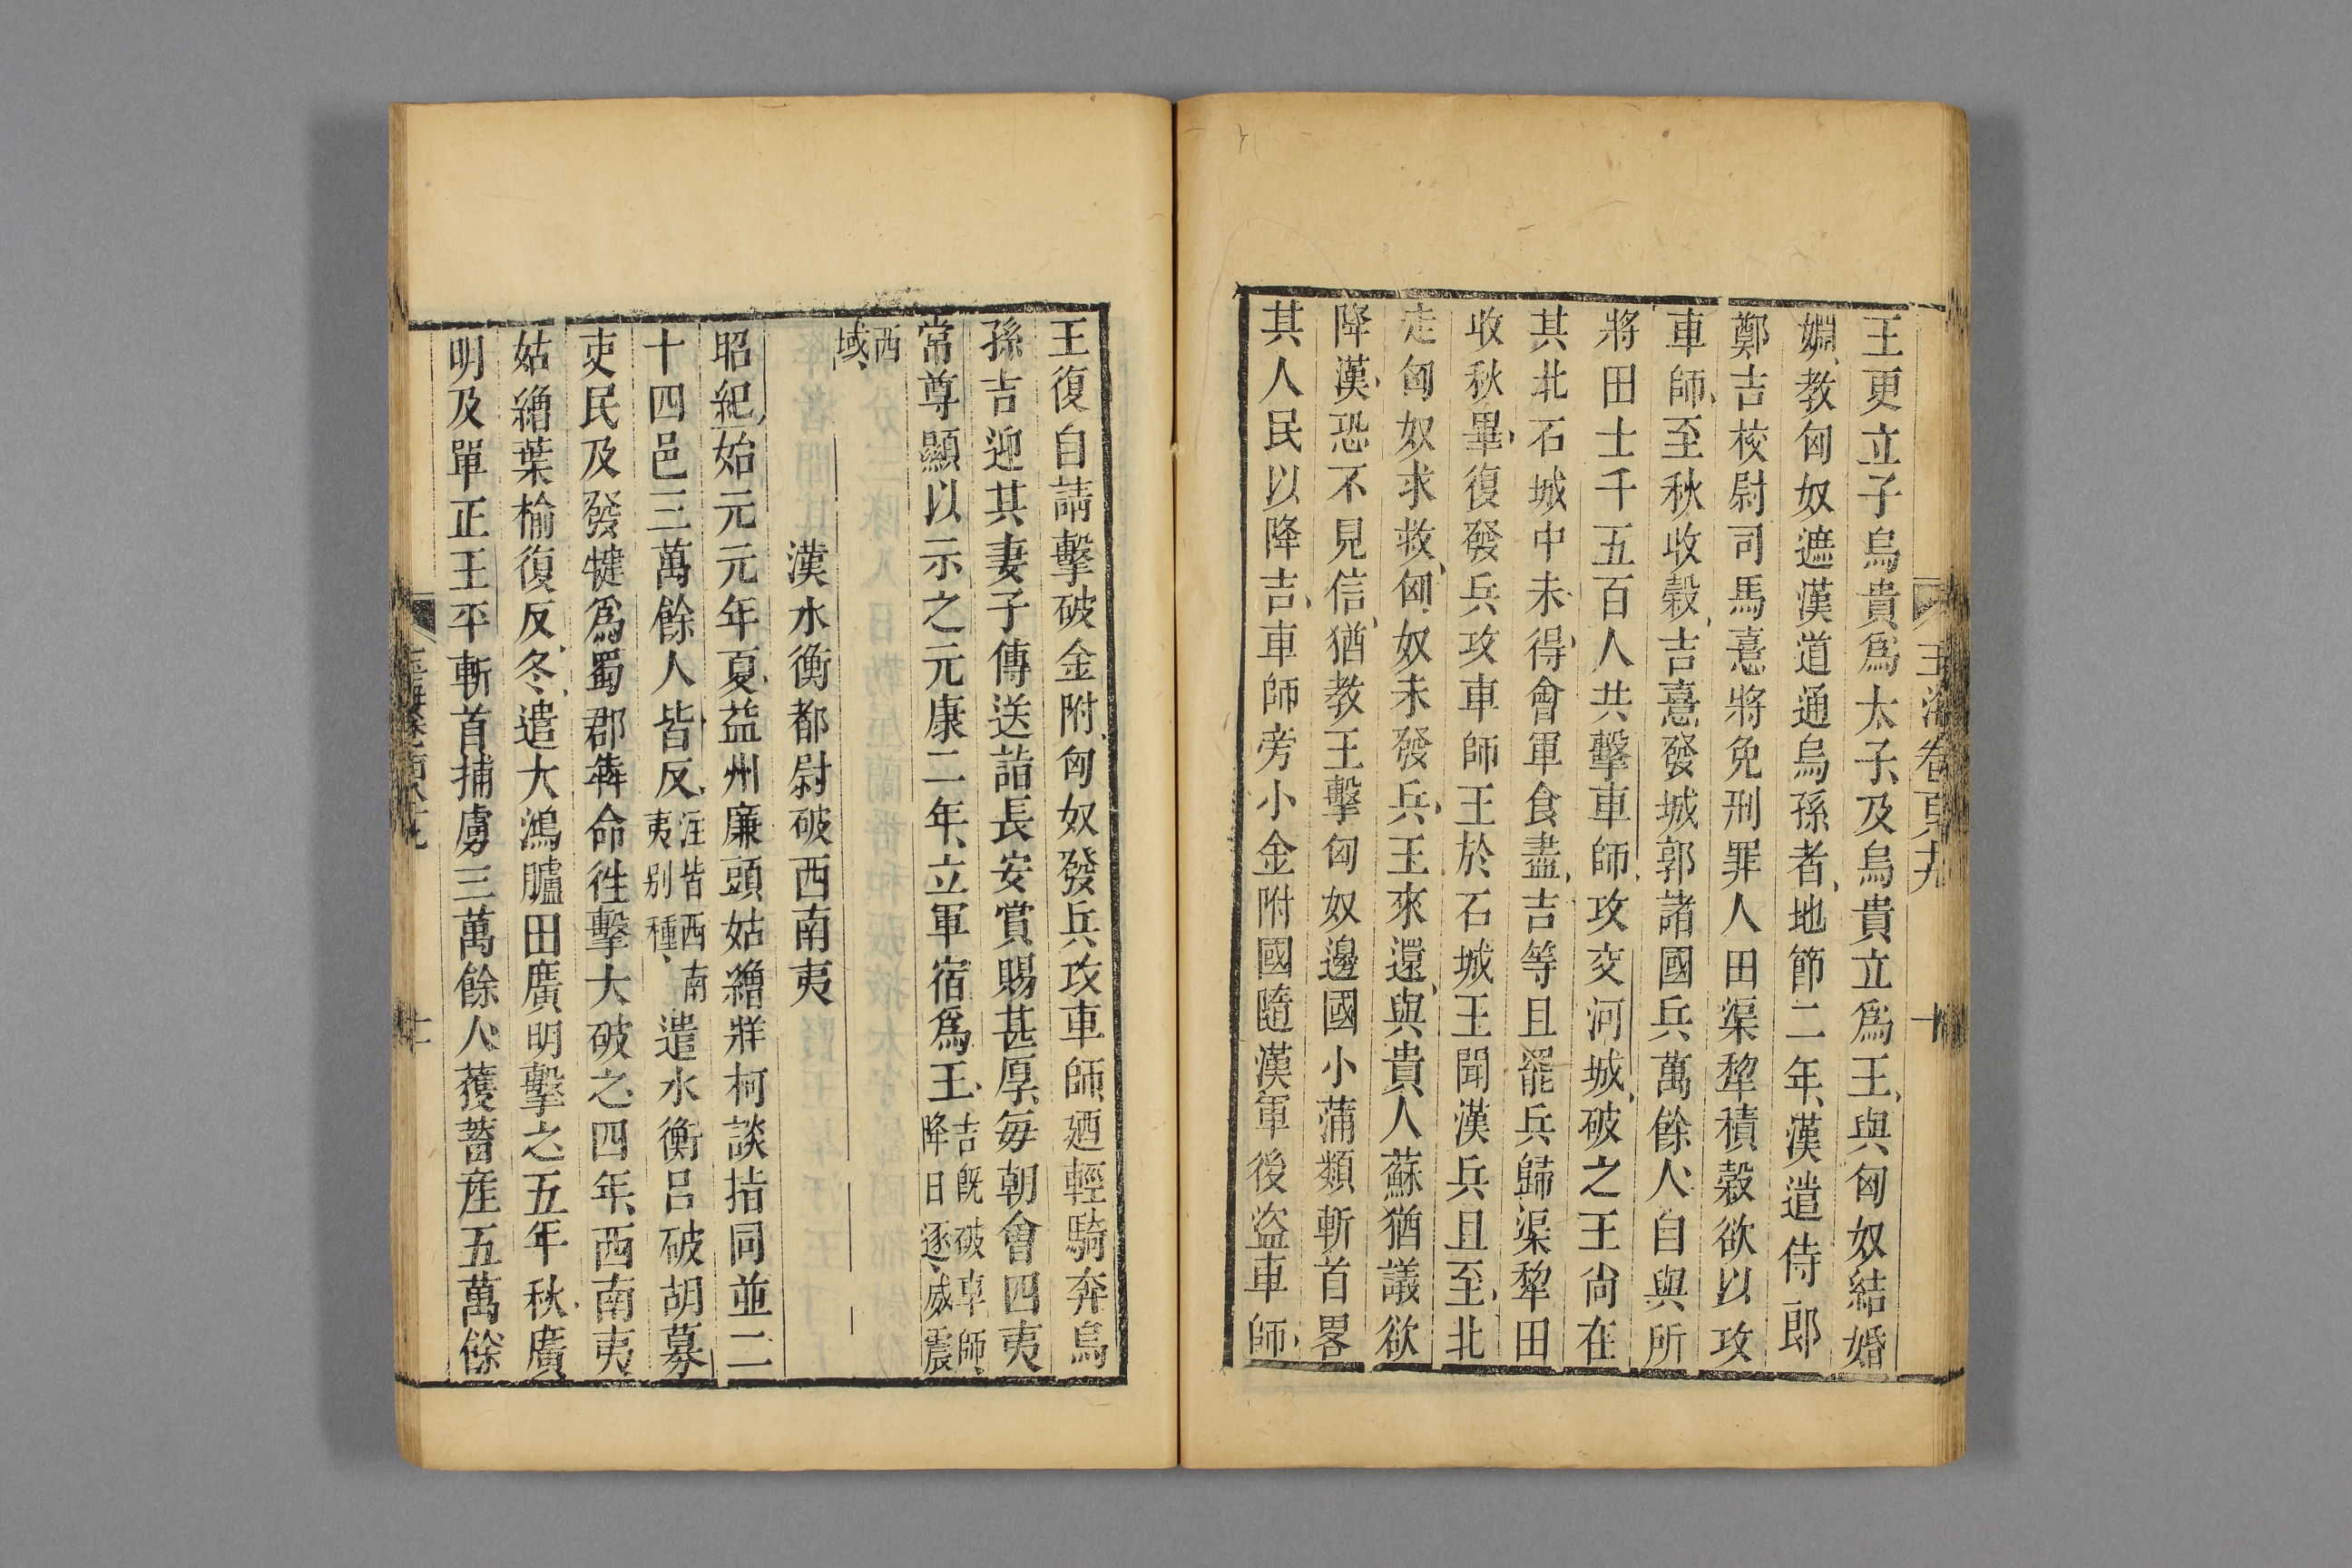 王更立子烏貴爲太子及烏貴立爲王與匈奴結婚
婣教匈奴遮漢道通烏孫者地節二年漢遣侍郎
鄭吉校尉司馬憙將免刑罪人田渠犂積穀欲以攻
車師至秋收穀吉憙發城郭諸國兵萬餘人自與所
將田士千五百人共擊車師攻交河城破之王尙在
其北石城中未得會軍食盡吉等且罷兵歸渠犂田
收秋畢復發兵攻車師王於石城王聞漢兵且至北
走匈奴求救匈奴未發兵王來還與貴人蘇猶議欲
降漢恐不見信猶教王擊匈奴邊國小蒲類斬首畧
其人民以降吉車師旁小金附國隨漢軍後盜車師
王復自請擊破金附匈奴發兵攻車師廼輕騎奔烏
孫吉迎其妻子傳送詣長安賞賜甚厚每朝會四夷
常尊顯以示之元康二年立軍宿爲王吉旣破車師降日逐威震
西域
漢水衡都尉破西南夷
昭紀始元元年夏益州廉頭姑繒牂柯談指同並二
十四邑三萬餘人皆反注皆西南夷别種遣水衡呂破胡募
吏民及發犍爲蜀郡犇命徃擊大破之四年西南夷
姑繒葉榆復反冬遣大鴻臚田廣明擊之五年秋廣
明及單正王平斬首捕虜三萬餘人獲蓄産五萬餘